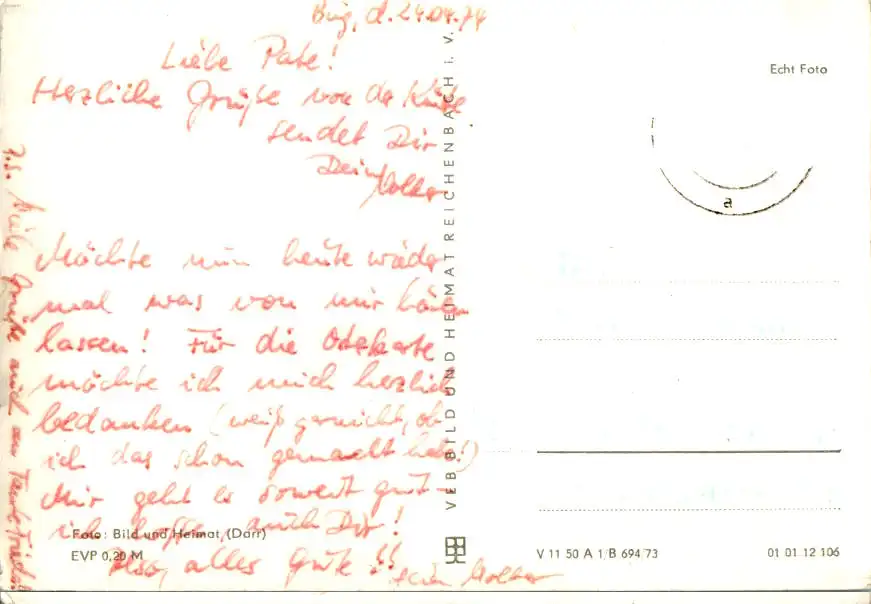 Burg, d. 24.04.74
Liebe Pate!
Herzliche Grüße von der Küste
sendet Dir
Dein Volker
Möchte nun heute wieder
mal was von mir hören
lassen! Für die Osterkarte
möchte ich mich herzlich
bedanken (weiß gar nicht, ob
ich das schon gemacht habe!)
Mir geht es soweit gut –
ich hoffe auch Dir!
Also, alles Gute!! Dein Volker
Viele Grüße auch an Tante
Foto: Bild und Heimat (Darr)
EVP 0,20 M
VEB BILD UND HEIMAT REICHENBACH I. V.
Echt Foto
a
V 11 50 A 1/B 694/73
01 01 12 106